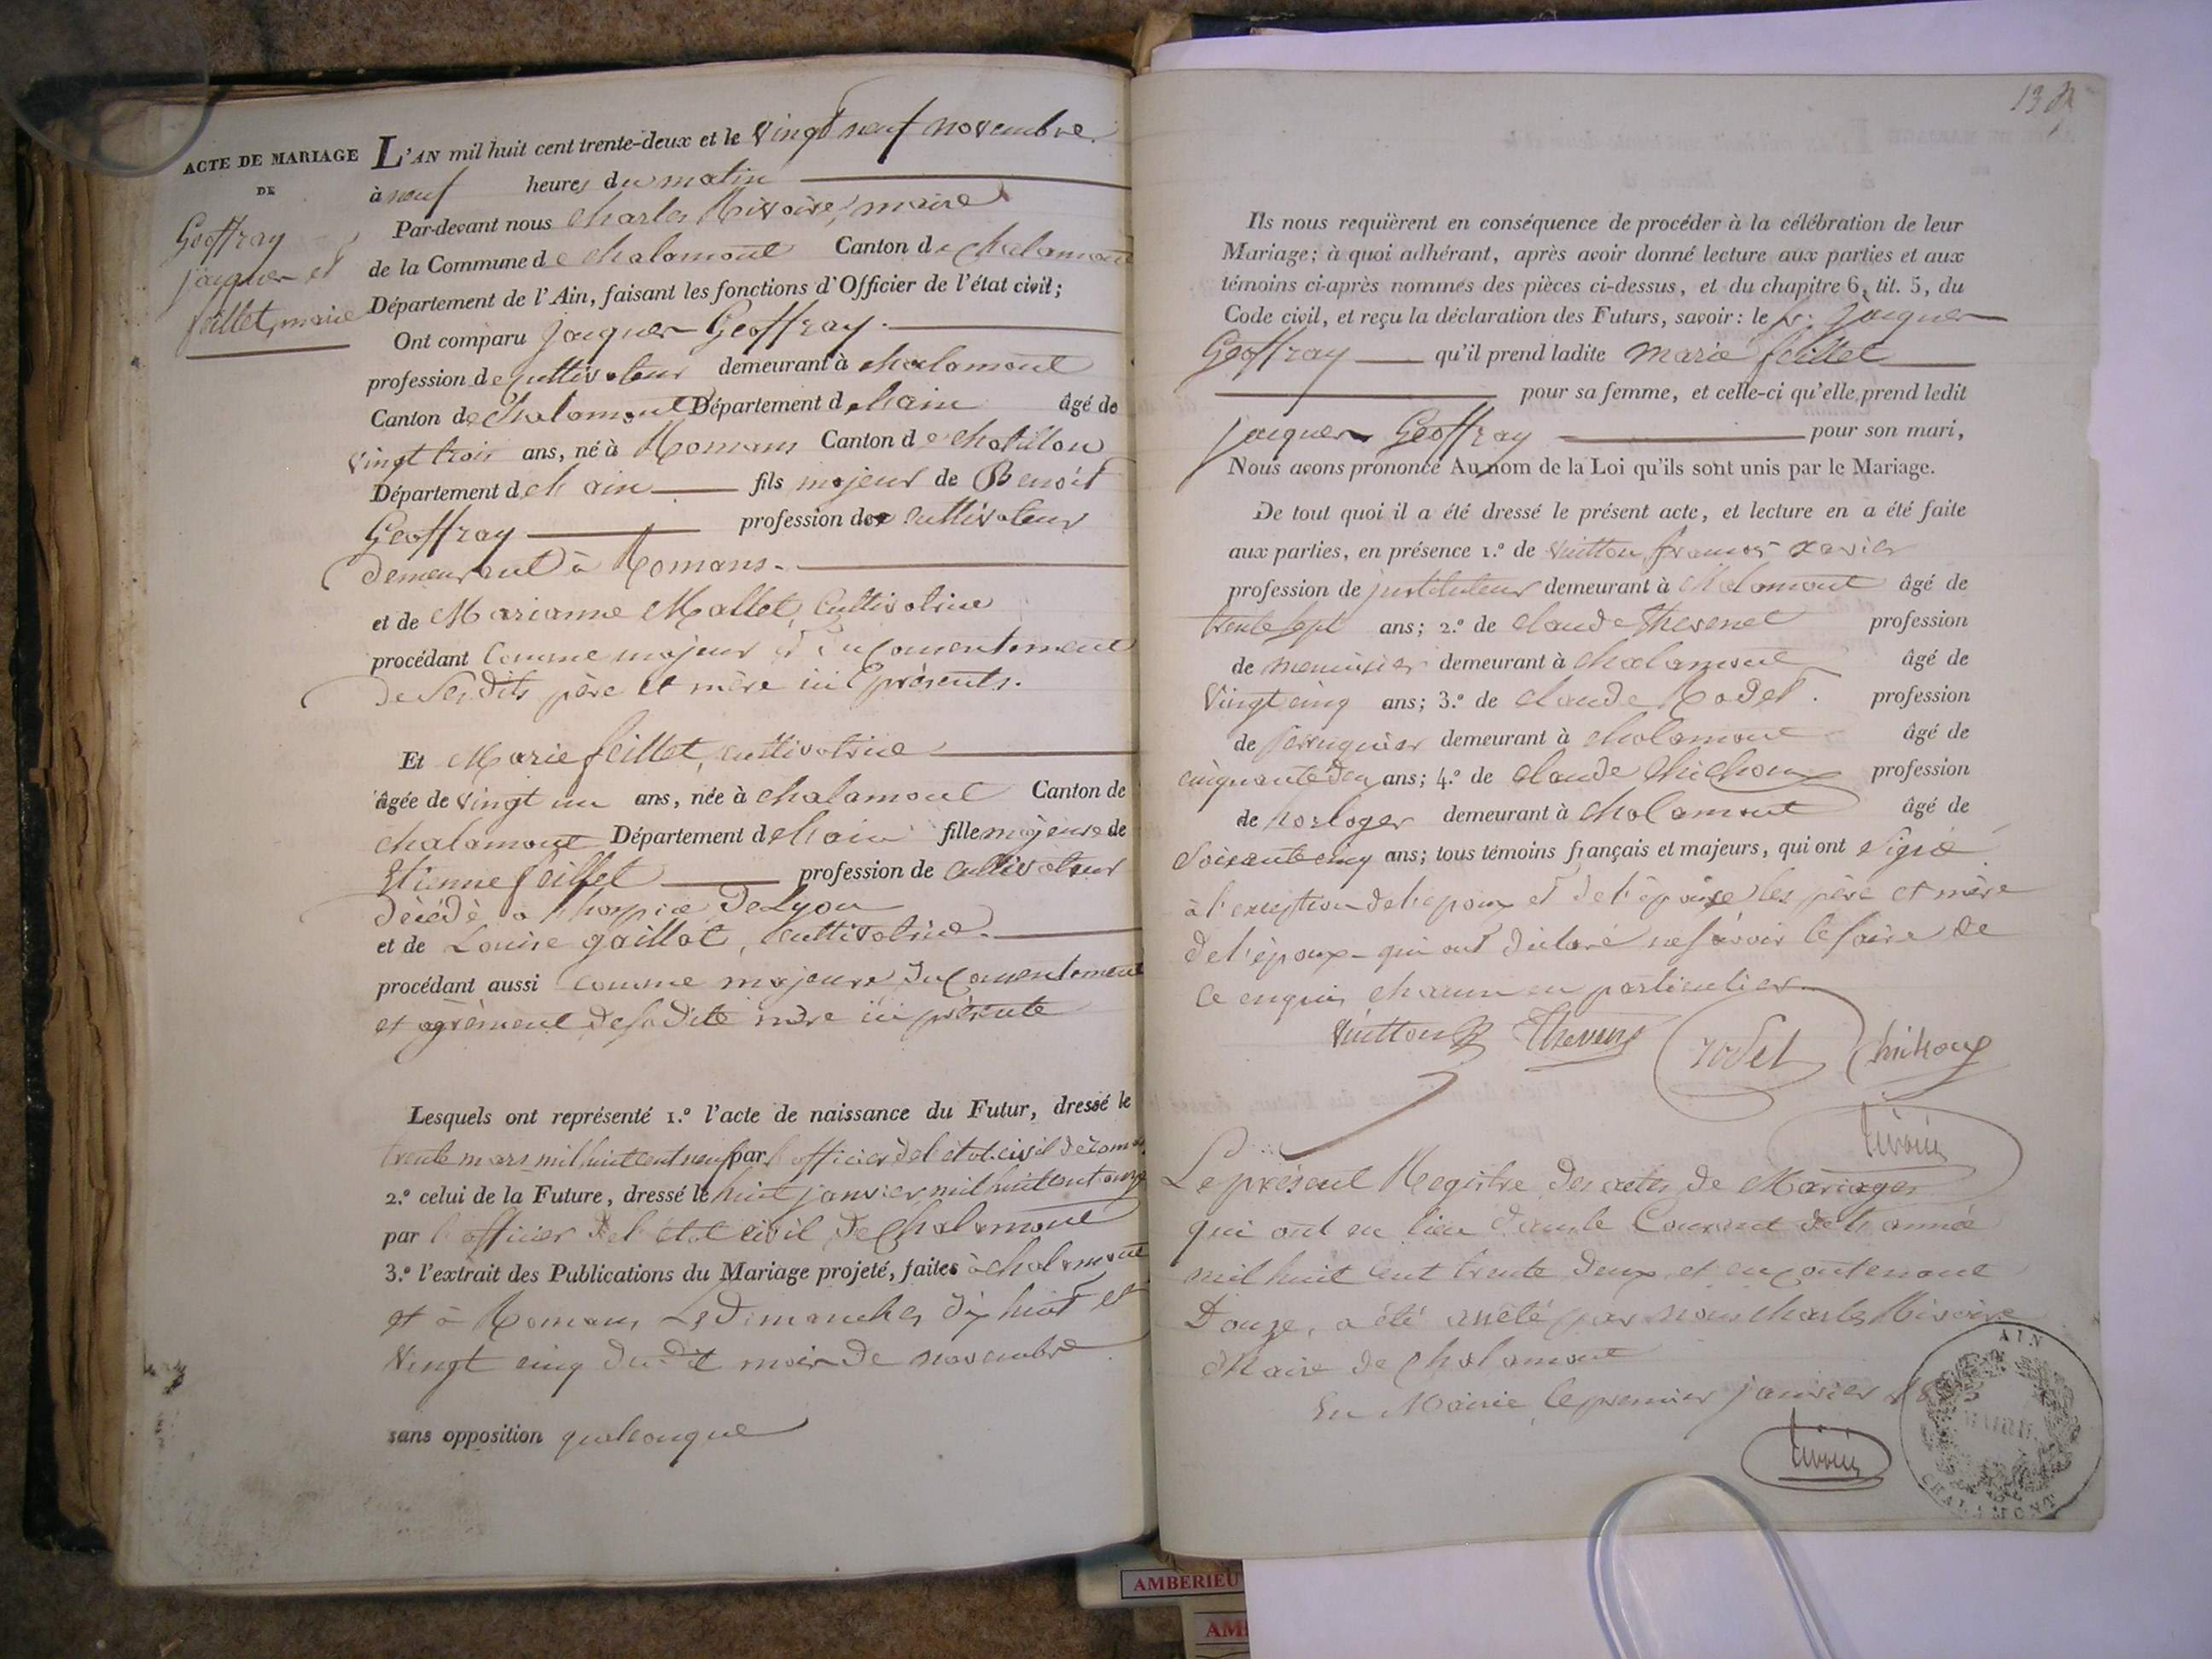 ACTE DE MARIAGE
DE
Geoffray
jacques et
feillet, marie
L'AN mil huit cent trente-deux et le vingt neuf novembre
à neuf heures du matin
Par-devant nous Charles Rivoire, maire
de la Commune de chalamont Canton de chalamont
Département de l'Ain, faisant les fonctions d'Officier de l'état civil;
Ont comparu jacques Geoffray
profession de cultivateur demeurant à chalamont
Canton de chalamont Département de l'ain âgé de
vingt trois ans, né à Romans Canton de chatillon
Département de l'ain fils majeur de Benoit
Geoffray profession de cultivateur
demeurant à Romans
et de Marianne Mallet, cultivatrice
procédant comme majeur et du consentement
de ses dits père et mère ici présents.
Et Marie feillet, cultivatrice
âgée de vingt un ans, née à chalamont Canton de
chalamont Département de l'ain fille majeure de
Etienne feillet profession de cultivateur
décédé à l'hospice de Lyon
et de Louise gaillot, cultivatrice
procédant aussi comme majeure du consentement
et agrément de sa dite mère ici présente
Lesquels ont représenté 1.º l'acte de naissance du Futur, dressé le
trente mars mil huit cent neuf par l'officier de l'état civil de
2.º celui de la Future, dressé le huit janvier mil huit cent onze
par l'officier de l'état civil de Chalamont
3.º l'extrait des Publications du Mariage projeté, faites à chalamont
et à Romans Les dimanches dix huit et
vingt cinq du dit mois de novembre
sans opposition quelconque
13
Ils nous requièrent en conséquence de procéder à la célébration de leur
Mariage; à quoi adhérant, après avoir donné lecture aux parties et aux
témoins ci-après nommés des pièces ci-dessus, et du chapitre 6, tit. 5, du
Code civil, et reçu la déclaration des Futurs, savoir: le sr. Jacques
Geoffray qu'il prend ladite marie feillet
pour sa femme, et celle-ci qu'elle prend ledit
jacques Geoffray pour son mari,
Nous avons prononcé Au nom de la Loi qu'ils sont unis par le Mariage.
De tout quoi il a été dressé le présent acte, et lecture en a été faite
aux parties, en présence 1.º de Vuitton françois xavier
profession de instituteur demeurant à chalamont âgé de
trente sept ans; 2.º de claude Thevenet profession
de menuisier demeurant à chalamont âgé de
vingt cinq ans; 3.º de claude Rodet profession
de perruquier demeurant à chalamont âgé de
cinquante deux ans; 4.º de claude Chichoux profession
de horloger demeurant à chalamont âgé de
Soixante cinq ans; tous témoins français et majeurs, qui ont signé
à l'exception de l'epoux et de l'épouse les père et mère
de l'époux qui ont déclaré ne savoir le faire de
ce enquis chacun en particulier
Vuitton Thevenet rodet Chichoux
Rivoire
Le présent Registre des actes de Mariages
qui ont eu lieu dans le Courant de l'année
mil huit cent trente deux et en contenant
Douze, a été arrêté par nous charles Rivoire
Maire de Chalamont
En Mairie le premier janvier
Rivoire
AIN
MAIRIE
CHALAMONT
AMBERIEU
AM